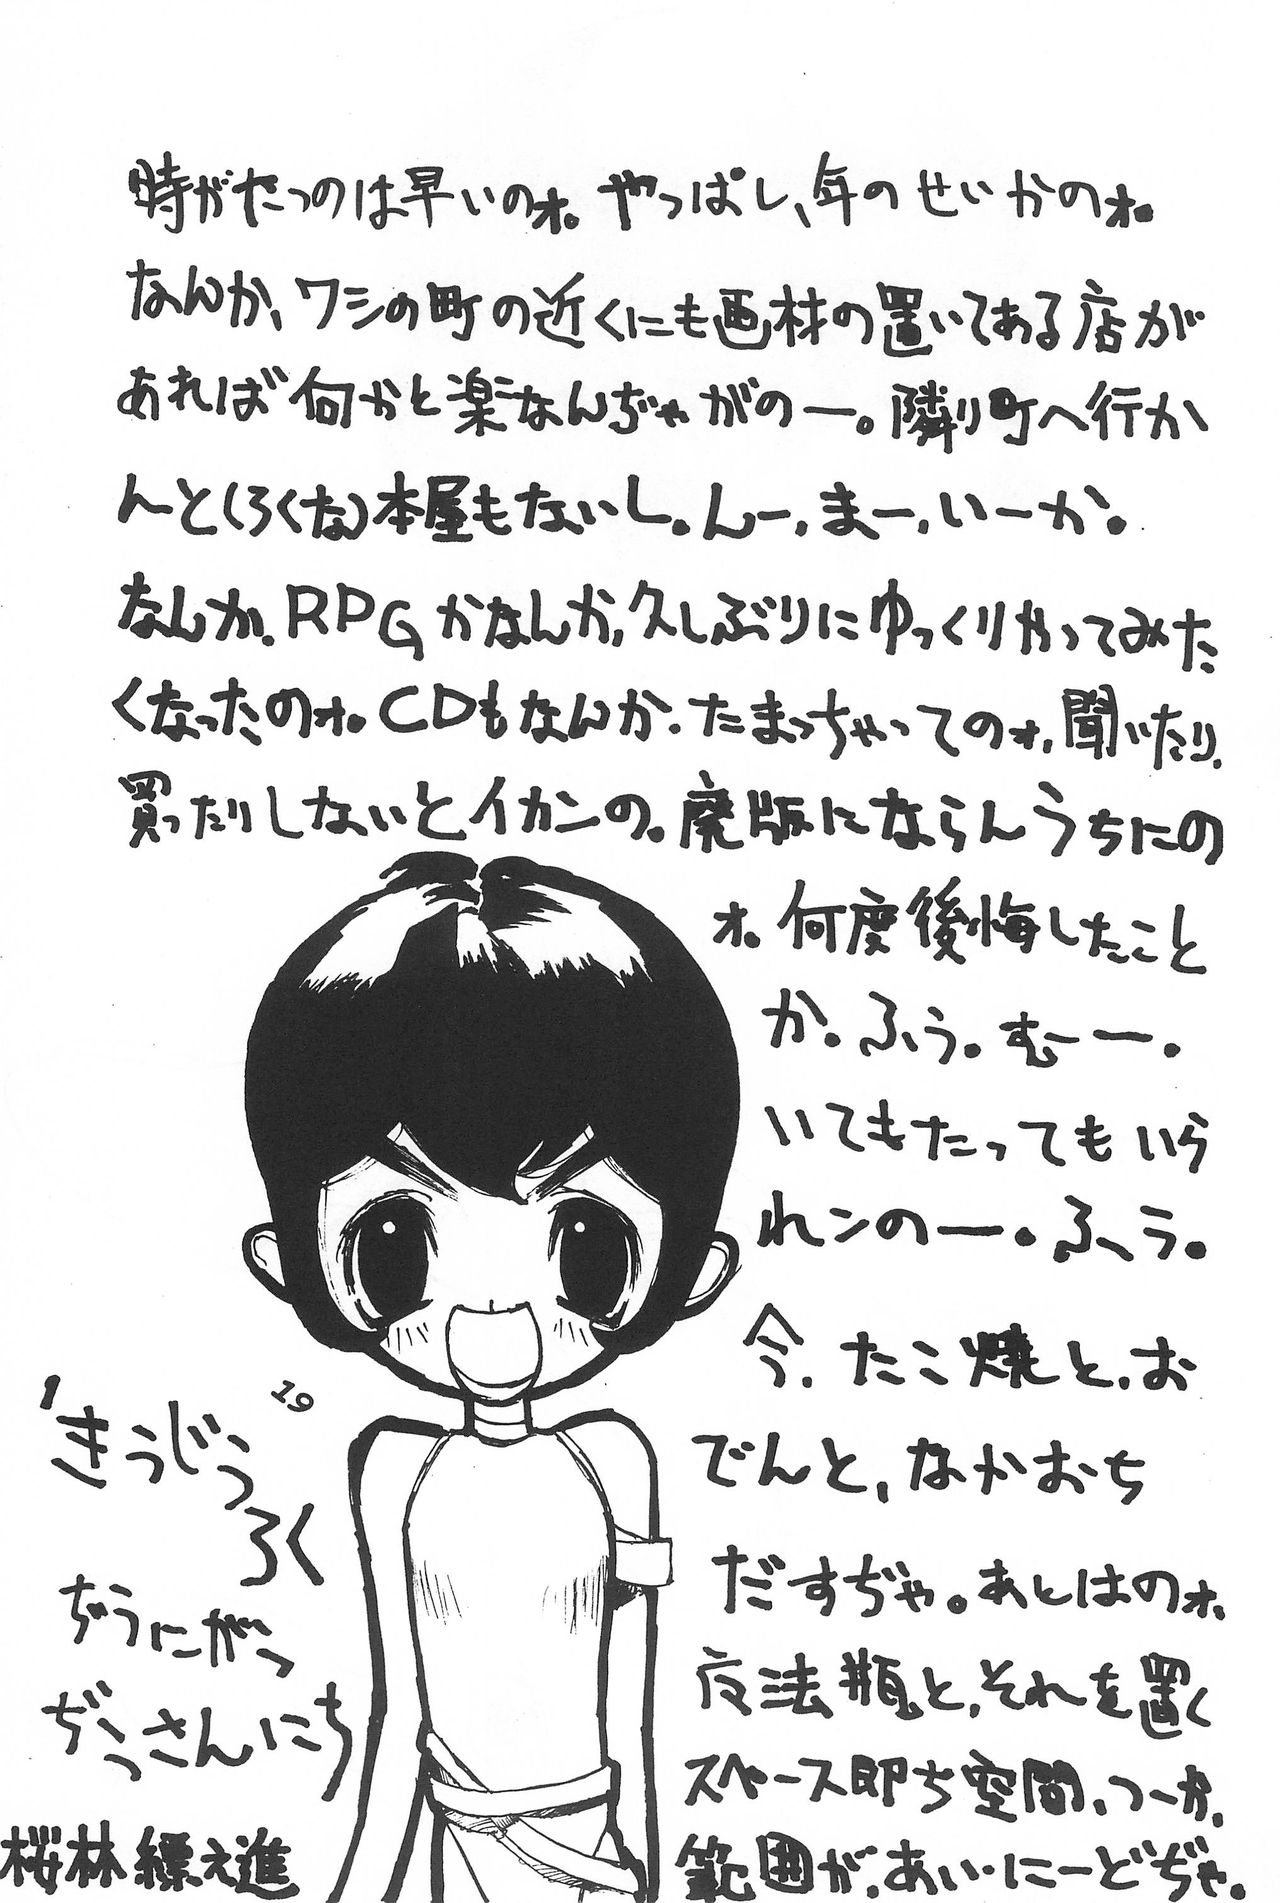 時がたつのは早いのォ。やっぱし、年のせいかのォ。
なんか、ワシの町の近くにも画材の置いてある店が
あれば何かと楽なんぢゃがのー。隣り町へ行か
んとろくな本屋もないし。んー、まー、いーか。
なんか。RPGかなんか、久しぶりにゆっくりやってみた
くなったのォ。CDもなんか、たまっちゃってのォ、聞いたり、
買ったりしないとイカンの。廃版にならんうちにの
ォ。何度後悔したこと
か。ふぅ。むーー。
いてもたってもいら
れンのー。ふぅ。
今、たこ焼と、お
でんと、なかおち
だすぢゃ。あとはのォ、
魔法瓶と、それを置く
スペース即ち空間、つーか、
範囲が、あい・にーどぢゃ。
19
'きうじうろく
ぢうにがつ
ぢうさんにち
桜林 進